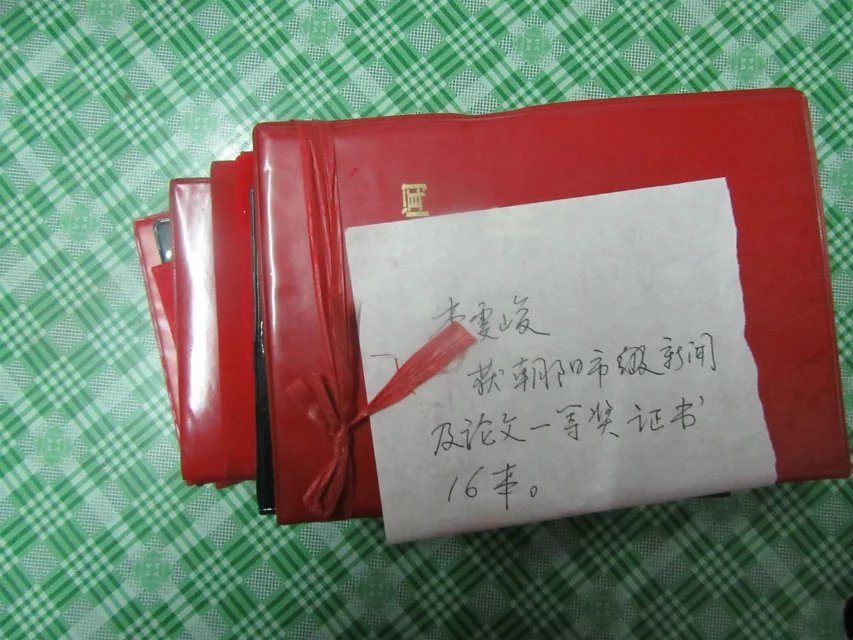 雯峻
获朝阳市级新闻
及论文一等奖证书
16本。